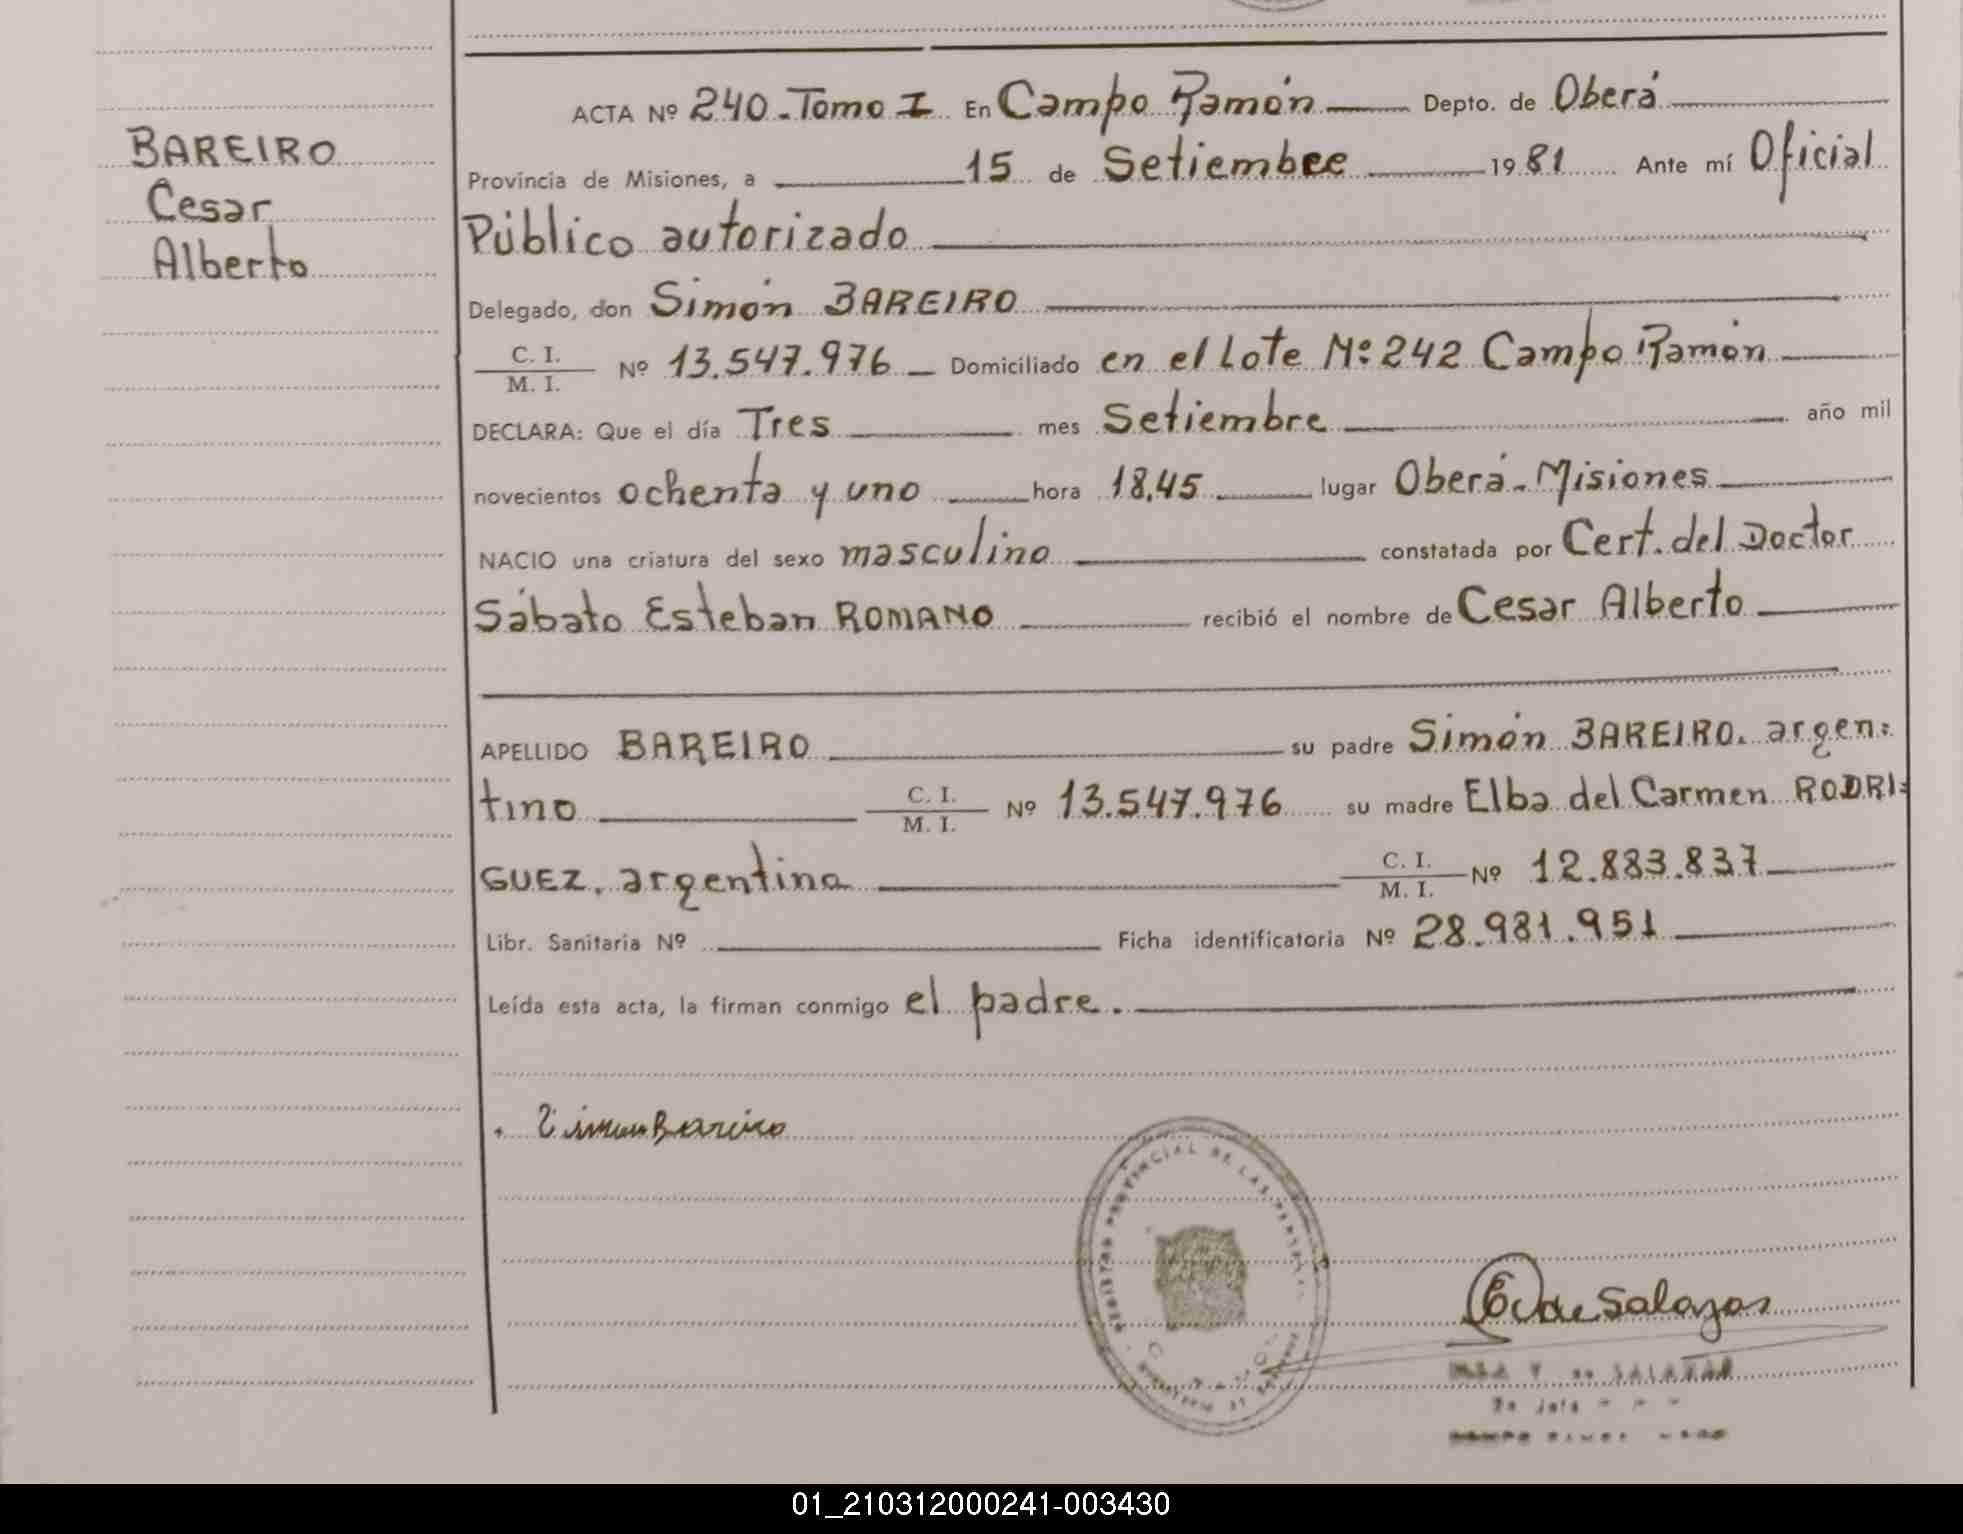 BAREIRO
Cesar
Alberto
ACTA Nº 240.Tomo I En Campo Ramón Depto. de Oberá
Provincia de Misiones, a 15 de Setiembre 1981 Ante mí Oficial
Público autorizado
Delegado, don Simón BAREIRO
C. I.
M. I.
Nº 13.547.976 Domiciliado en el Lote Nº: 242 Campo Ramón
DECLARA: Que el día Tres mes Setiembre año mil
novecientos ochenta y uno hora 18,45 lugar Oberá-Misiones
NACIO una criatura del sexo masculino constatada por Cert. del Doctor
Sábato Esteban ROMANO recibió el nombre de Cesar Alberto
APELLIDO BAREIRO su padre Simón BAREIRO. argen:
tino C. I.
M. I.
Nº 13.547.976 su madre Elba del Carmen RODRI=
GUEZ, argentina C. I.
M. I.
Nº 12.883.837
Libr. Sanitaria Nº Ficha identificatoria Nº 28.981.951
Leída esta acta, la firman conmigo el padre.
Simon Bareiro
PROVINCIAL DE LAS
de Salazar
SALAZAR
01_210312000241-003430